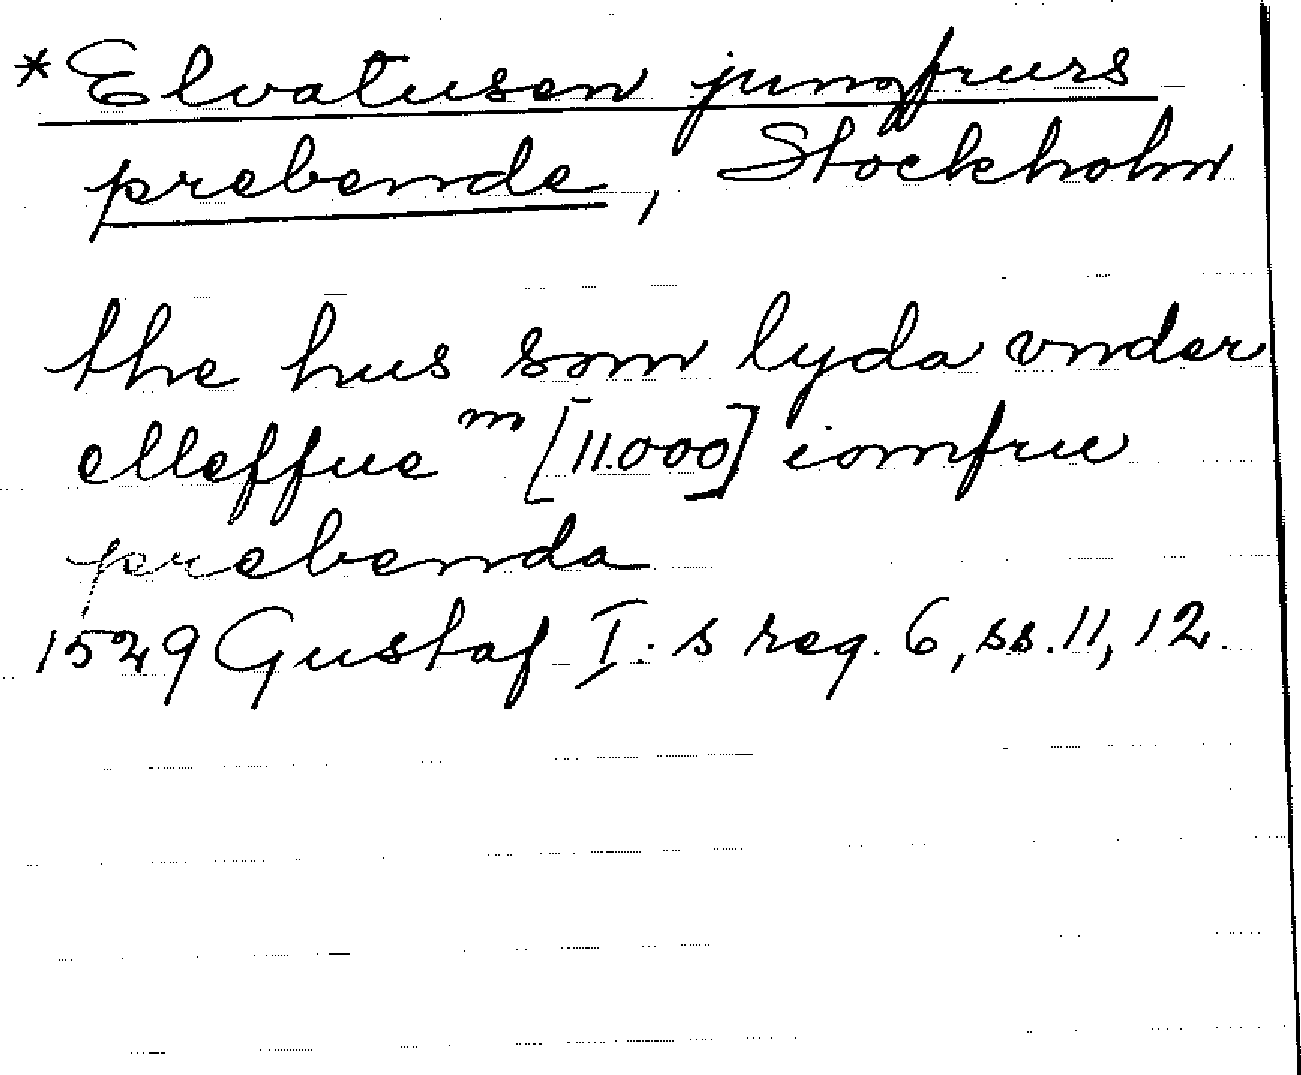 *Elvatusen jungfrurs
prebende, Stockholm
the hus som lyda vnder
elleffue m [11.000] iomfrue
prebenda
1529 Gustaf I:s reg. 6, ss. 11, 12.